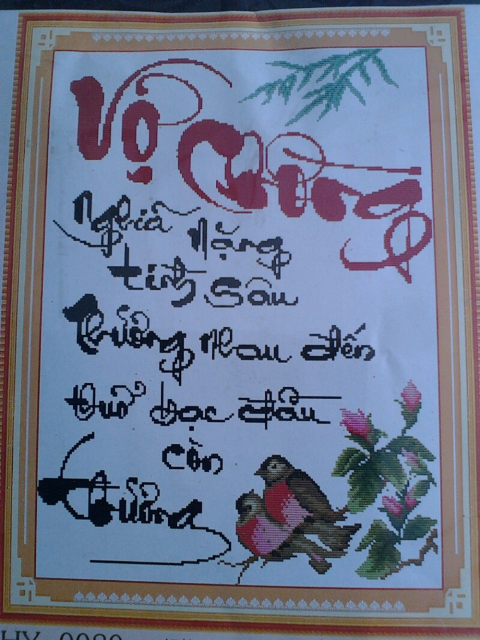 Vợ Chồng
Nghĩa Nặng
tình Sâu
Thương nhau đến
thuở bạc đầu
còn
Thương
HY 0080